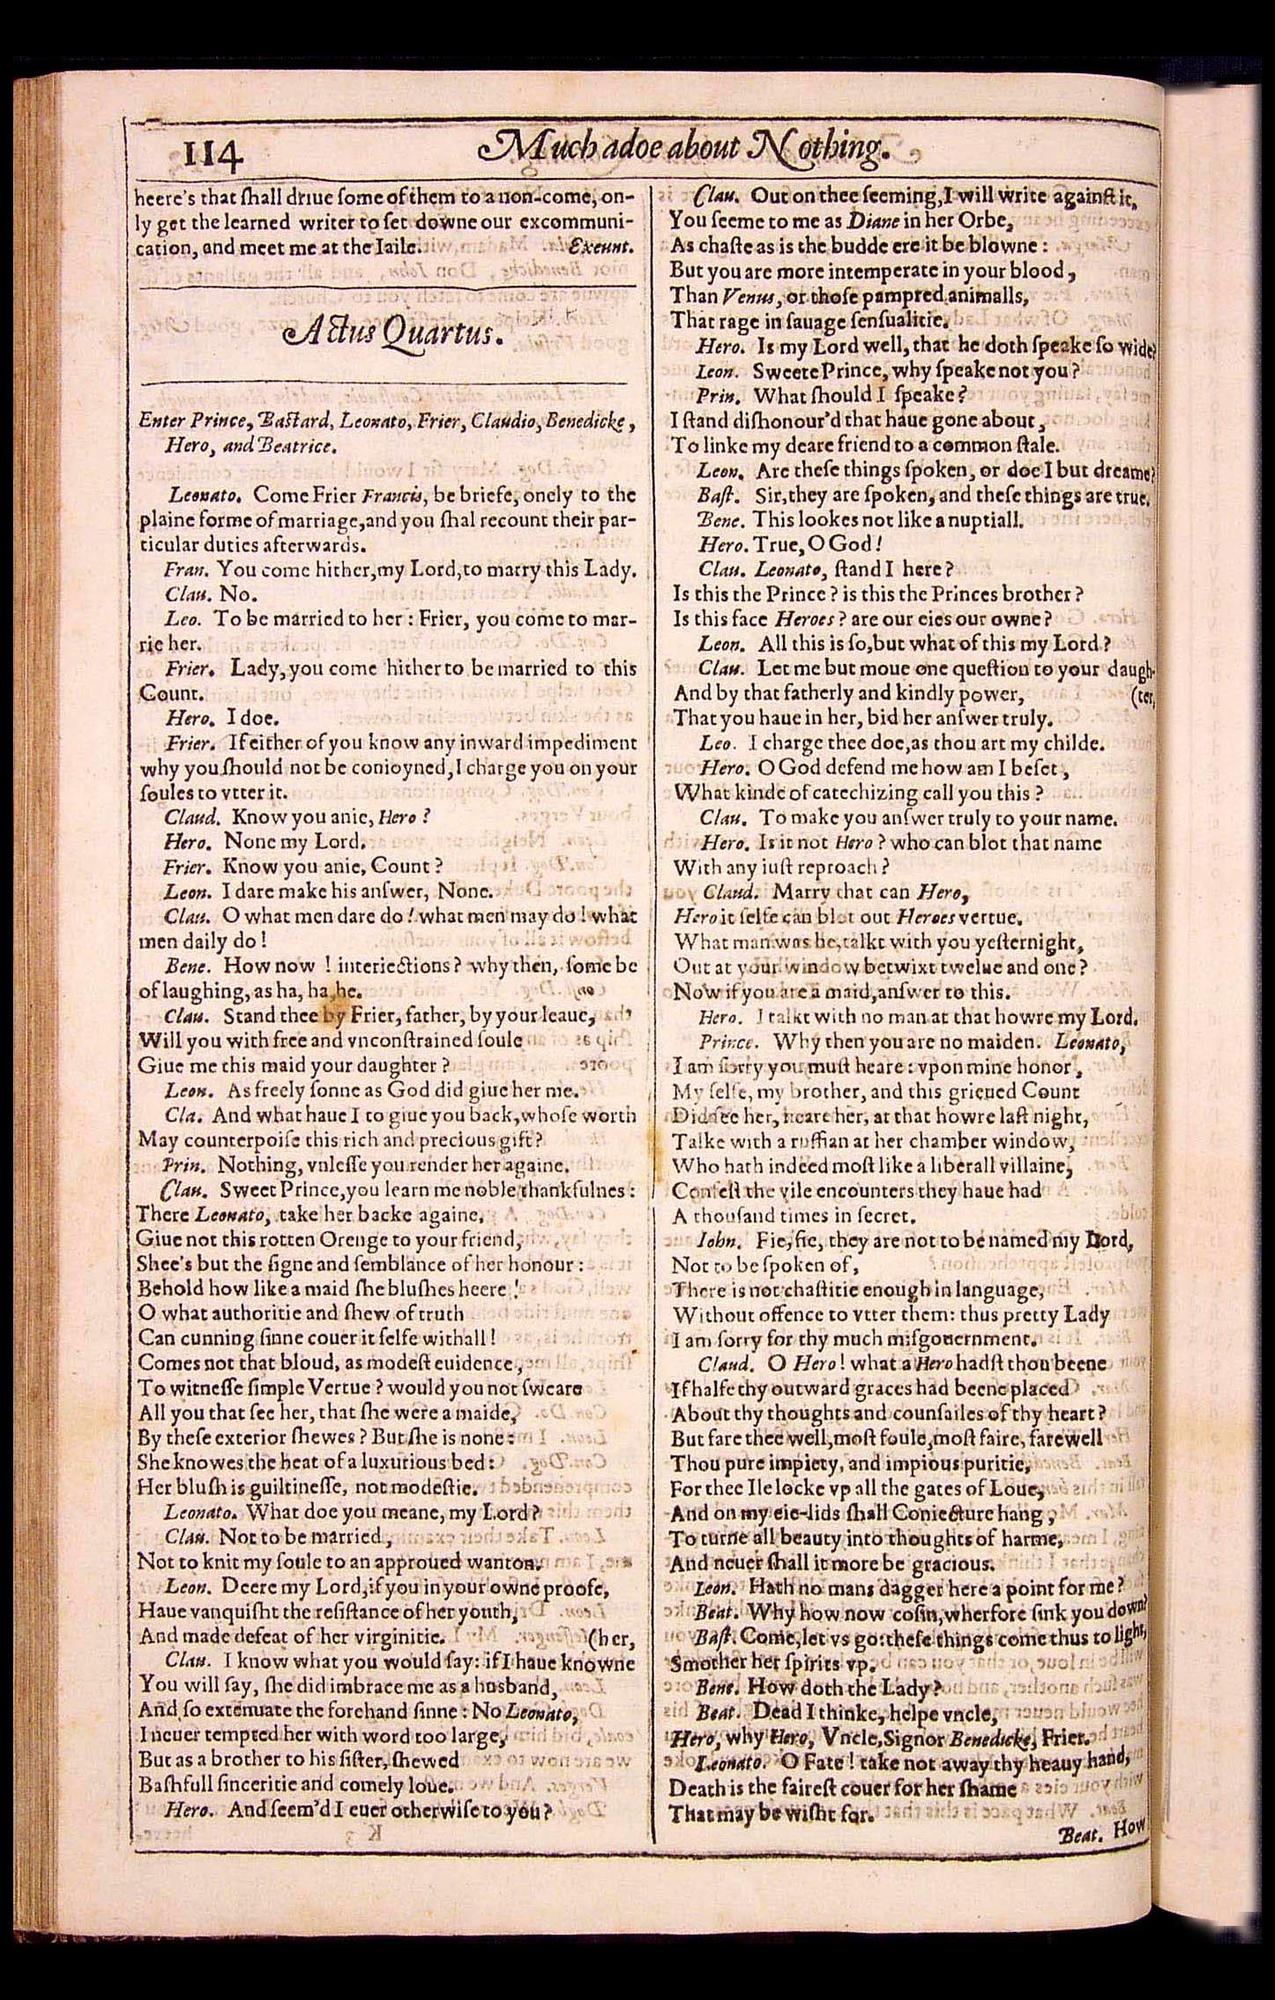 114
Much adoe about Nothing.
heere's that shall driue some of them to a non-come, on-
ly get the learned writer to set downe our excommuni-
cation, and meet me at the Iaile. Exeunt.
Actus Quartus.
Enter Prince, Bastard, Leonato, Frier, Claudio, Benedicke,
Hero, and Beatrice.
Leonato. Come Frier Francis, be briefe, onely to the
plaine forme of marriage, and you shal recount their par-
ticular duties afterwards.
Fran. You come hither, my Lord, to marry this Lady.
Clau. No.
Leo. To be married to her : Frier, you come to mar-
rie her.
Frier. Lady, you come hither to be married to this
Count.
Hero. I doe.
Frier. If either of you know any inward impediment
why you should not be conioyned, I charge you on your
soules to vtter it.
Claud. Know you anie, Hero ?
Hero. None my Lord.
Frier. Know you anie, Count ?
Leon. I dare make his answer, None.
Clau. O what men dare do ! what men may do ! what
men daily do !
Bene. How now ! interiections ? why then, some be
of laughing, as ha, ha, he.
Clau. Stand thee by Frier, father, by your leaue,
Will you with free and vnconstrained soule
Giue me this maid your daughter ?
Leon. As freely sonne as God did giue her me.
Cla. And what haue I to giue you back, whose worth
May counterpoise this rich and precious gift ?
Prin. Nothing, vnlesse you render her againe.
Clau. Sweet Prince, you learn me noble thankfulnes :
There Leonato, take her backe againe,
Giue not this rotten Orenge to your friend,
Shee's but the signe and semblance of her honour :
Behold how like a maid she blushes heere !
O what authoritie and shew of truth
Can cunning sinne couer it selfe withall !
Comes not that bloud, as modest euidence,
To witnesse simple Vertue ? would you not sweare
All you that see her, that she were a maide,
By these exterior shewes ? But she is none :
She knowes the heat of a luxurious bed :
Her blush is guiltinesse, not modestie.
Leonato. What doe you meane, my Lord ?
Clau. Not to be married,
Not to knit my soule to an approued wanton.
Leon. Deere my Lord, if you in your owne proofe,
Haue vanquisht the resistance of her youth,
And made defeat of her virginitie. (her,
Clau. I know what you would say : if I haue knowne
You will say, she did imbrace me as a husband,
And so extenuate the forehand sinne : No Leonato,
I neuer tempted her with word too large,
But as a brother to his sister, shewed
Bashfull sinceritie and comely loue.
Hero. And seem'd I euer otherwise to you ?
Clau. Out on thee seeming, I will write against it,
You seeme to me as Diane in her Orbe,
As chaste as is the budde ere it be blowne :
But you are more intemperate in your blood,
Than Venus, or those pampred animalls,
That rage in sauage sensualitie.
Hero. Is my Lord well, that he doth speake so wide?
Leon. Sweete Prince, why speake not you ?
Prin. What should I speake ?
I stand dishonour'd that haue gone about,
To linke my deare friend to a common stale.
Leon. Are these things spoken, or doe I but dreame?
Bast. Sir, they are spoken, and these things are true.
Bene. This lookes not like a nuptiall.
Hero. True, O God !
Clau. Leonato, stand I here ?
Is this the Prince ? is this the Princes brother ?
Is this face Heroes ? are our eies our owne ?
Leon. All this is so, but what of this my Lord ?
Clau. Let me but moue one question to your daugh-
And by that fatherly and kindly power, (ter,
That you haue in her, bid her answer truly.
Leo. I charge thee doe, as thou art my childe.
Hero. O God defend me how am I beset,
What kinde of catechizing call you this ?
Clau. To make you answer truly to your name.
Hero. Is it not Hero ? who can blot that name
With any iust reproach ?
Claud. Marry that can Hero,
Hero it selfe can blot out Heroes vertue.
What man was he, talkt with you yesternight,
Out at your window betwixt twelue and one ?
Now if you are a maid, answer to this.
Hero. I talkt with no man at that howre my Lord.
Prince. Why then you are no maiden. Leonato,
I am sorry you must heare : vpon mine honor,
My selfe, my brother, and this grieued Count
Did see her, heare her, at that howre last night,
Talke with a ruffian at her chamber window,
Who hath indeed most like a liberall villaine,
Confest the vile encounters they haue had
A thousand times in secret.
Iohn. Fie, fie, they are not to be named my Lord,
Not to be spoken of,
There is not chastitie enough in language,
Without offence to vtter them : thus pretty Lady
I am sorry for thy much misgouernment.
Claud. O Hero ! what a Hero hadst thou beene
If halfe thy outward graces had beene placed
About thy thoughts and counsailes of thy heart ?
But fare thee well, most foule, most faire, farewell
Thou pure impiety, and impious puritie,
For thee Ile locke vp all the gates of Loue,
And on my eie-lids shall Coniecture hang,
To turne all beauty into thoughts of harme,
And neuer shall it more be gracious.
Leon. Hath no mans dagger here a point for me ?
Beat. Why how now cosin, wherfore sink you down?
Bast. Come, let vs go: these things come thus to light,
Smother her spirits vp.
Bene. How doth the Lady ?
Beat. Dead I thinke, helpe vncle,
Hero, why Hero, Vncle, Signor Benedicke, Frier.
Leonato. O Fate ! take not away thy heauy hand,
Death is the fairest couer for her shame
That may be wisht for.
Beat. How